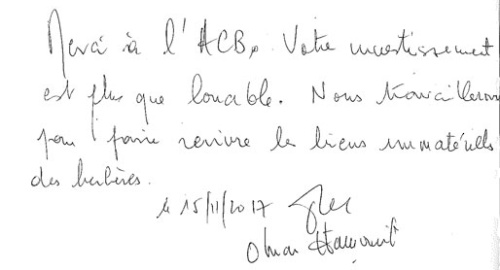 Merci à l'ACB. Votre investissement
est plus que louable. Nous travaillerons
pour faire revivre les liens immatériels
des berbères.
le 15/11/2017
Omar